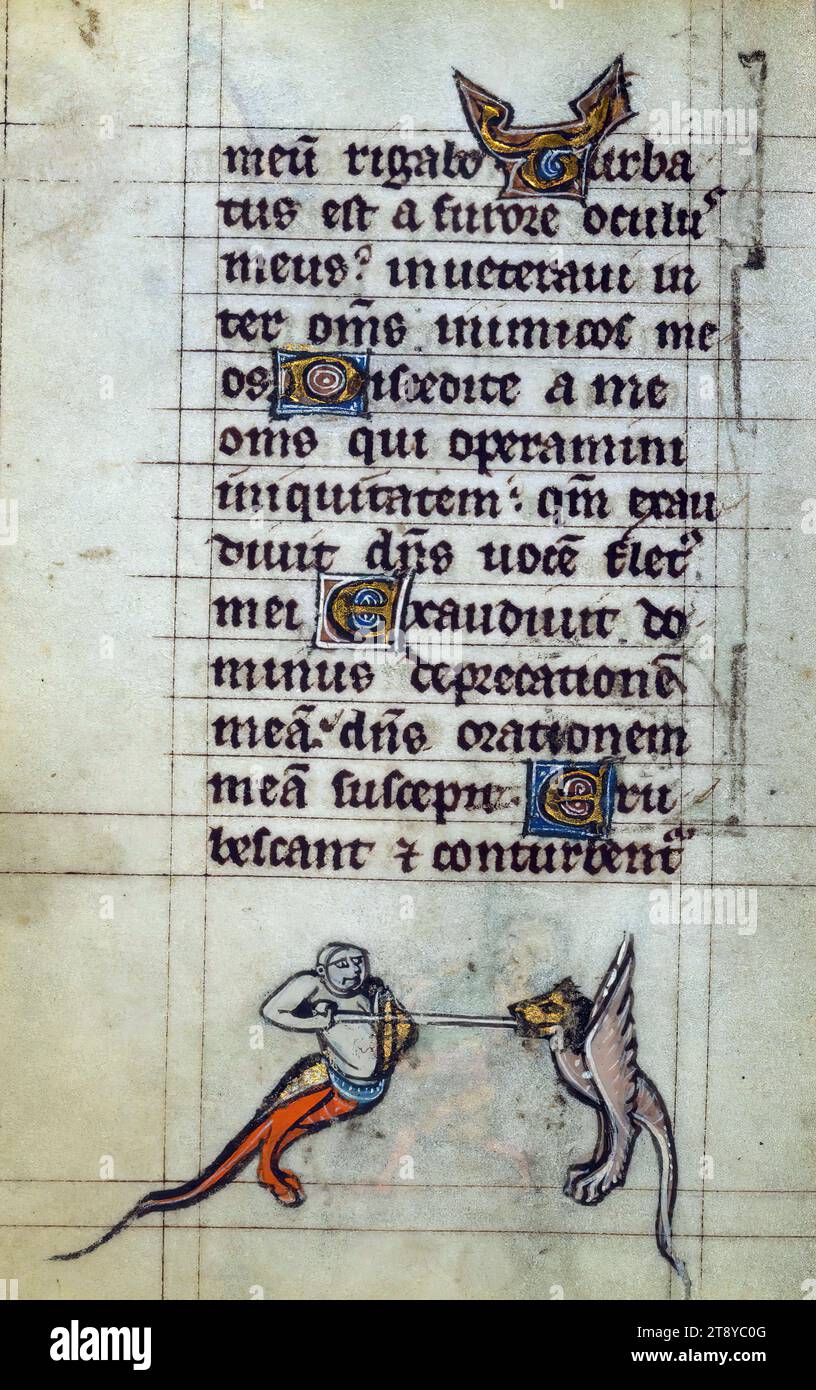 meū rigabo Turba
tus est a furore oculus
meus? inueteraui in
ter om̄s inimicos me
os Discedite a me
om̄s qui operamini
iniquitatem: qm̄ exau
diuit dn̄s uocē flet᷒
mei Exaudiuit do
minus deprecationē
meā. dn̄s orationem
meā suscepit. Eru
bescant ⁊ conturbent᷒
alamy
alamy
alamy
alamy
alamy
Image ID: 2T8YC0G
www.alamy.com